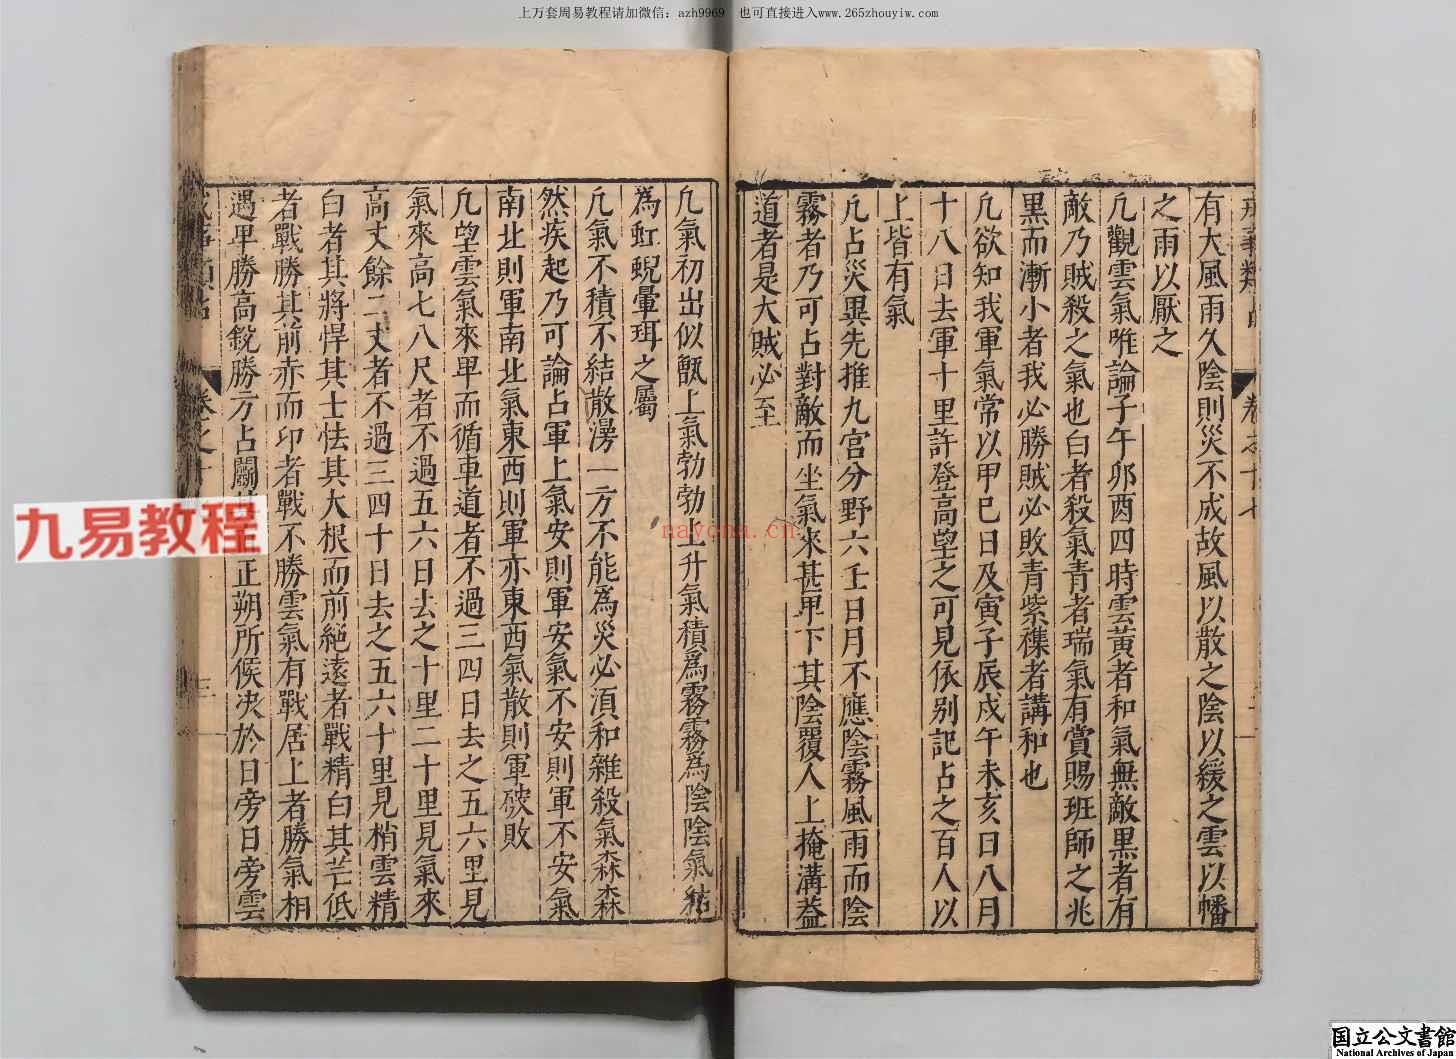 上万套周易教程请加微信：azh9969　也可直接进入www.265zhouyiw.com
卷之十七
有大風雨久陰則災不成故風以散之陰以緩之雲以幡
之雨以厭之
凢觀雲氣唯論子午卯酉四時雲黃者和氣無敵黑者有
敵乃賊殺之氣也白者殺氣青者瑞氣有賞賜班師之兆
黑而漸小者我必勝賊必敗青紫襍者講和也
凢欲知我軍氣常以甲巳日及寅子辰戍午未亥日八月
十八日去軍十里許登高望之可見依别記占之百人以
上皆有氣
凢占災異先推九宫分野六壬日月不應陰霧風雨而陰
霧者乃可占對敵而坐氣來甚卑下其陰覆人上掩溝益
道者是大賊必至
凢氣初出似甑上氣勃勃上升氣積為霧霧為陰陰氣結
為虹蜺暈珥之屬
凢氣不積不結散漫一方不能為災必湏和雜殺氣森森
然疾起乃可論占軍上氣安則軍安氣不安則軍不安氣
南北則軍南北氣東西則軍亦東西氣散則軍破敗
凢望雲氣來卑而循車道者不過三四日去之五六里見
氣來高七八尺者不過五六日去之十里二十里見氣來
高丈餘二丈者不過三四十日去之五六十里見梢雲精
白者其將悍其士怯其大根而前絕逺者戰精白其芒低
者戰勝其前赤而印者戰不勝雲氣有戰居上者勝氣相
遇卑勝高銳勝方占鬭正朔所候决於日旁日旁雲
三
九易教程
nayona.cn
国立公文書館
National Archives of Japan